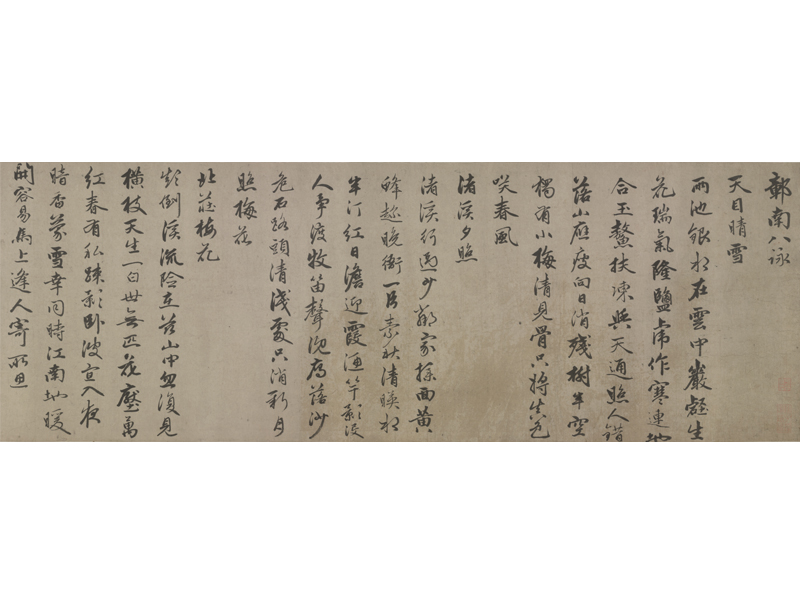 鄣南八詠
天目晴雪
兩池銀水在雲中巖壑生
花瑞氣隆鹽虎作寒連地
合玉鰲扶凍與天通照人錯
落山應瘦向日消殘樹半空
獨有小梅清見骨只將生色
咲春風
渚溪夕照
渚溪行過少鄰家採面黃
蜂趂晚衙一段素秋清映水
半汀紅日澹迎霞漁竿影沒
人爭渡牧笛聲沈鳫落沙
危石路頭清淺處只消新月
照梅花
北莊梅花
彭倒溪流險立苔山中忽復見
橫枝天生一白世無匹花壓萬
紅春有私疎影臥波宜入夜
暗香蒙雪幸同時江南地暖
開容易馬上逢人寄所思